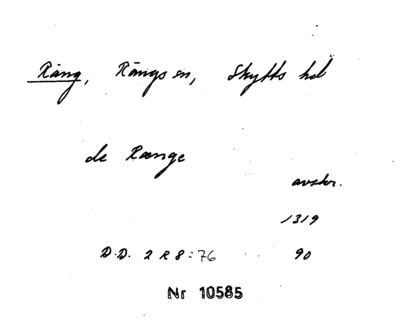 Räng, Rängs sn, Skytts hd
de Rænge
avskr.
1319
D.D. 2 R 8:76 90
Nr 10585